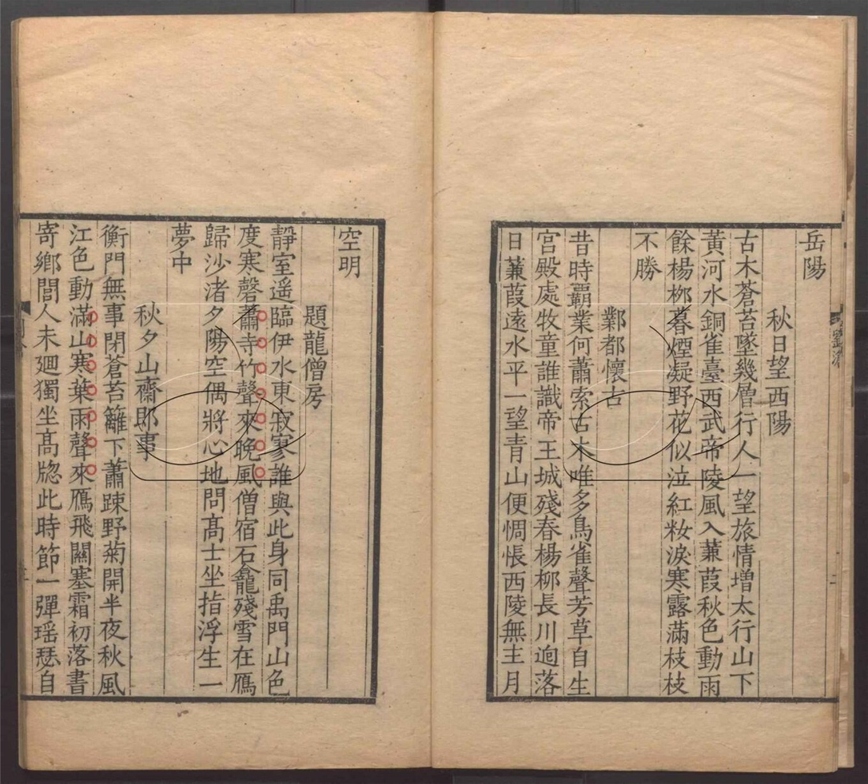 岳陽
秋日望西陽
古木蒼苔墜幾層行人一望旅情増太行山下
黃河水銅雀臺西武帝陵風入蒹葭秋色動雨
餘楊桞暮煙凝野花似泣紅粧淚寒露滿枝枝
不勝
鄴都懷古
昔時覇業何蕭索古木唯多鳥雀聲芳草自生
宮殿處牧童誰識帝王城殘春楊柳長川迥落
日蒹葭遠水平一望青山便惆悵西陵無主月
空明
題龍僧房
靜室遥臨伊水東寂寥誰與此身同禹門山色
度寒磬蕭寺竹聲來晚風僧宿石龕殘雪在鴈
歸沙渚夕陽空偶將心地問髙士坐指浮生一
夢中
秋夕山齋即事
衡門無事閉蒼苔籬下蕭踈野菊開半夜秋風
江色動滿山寒葉雨聲來鴈飛關塞霜初落書
寄鄉閭人未廻獨坐髙牕此時節一彈瑶瑟自